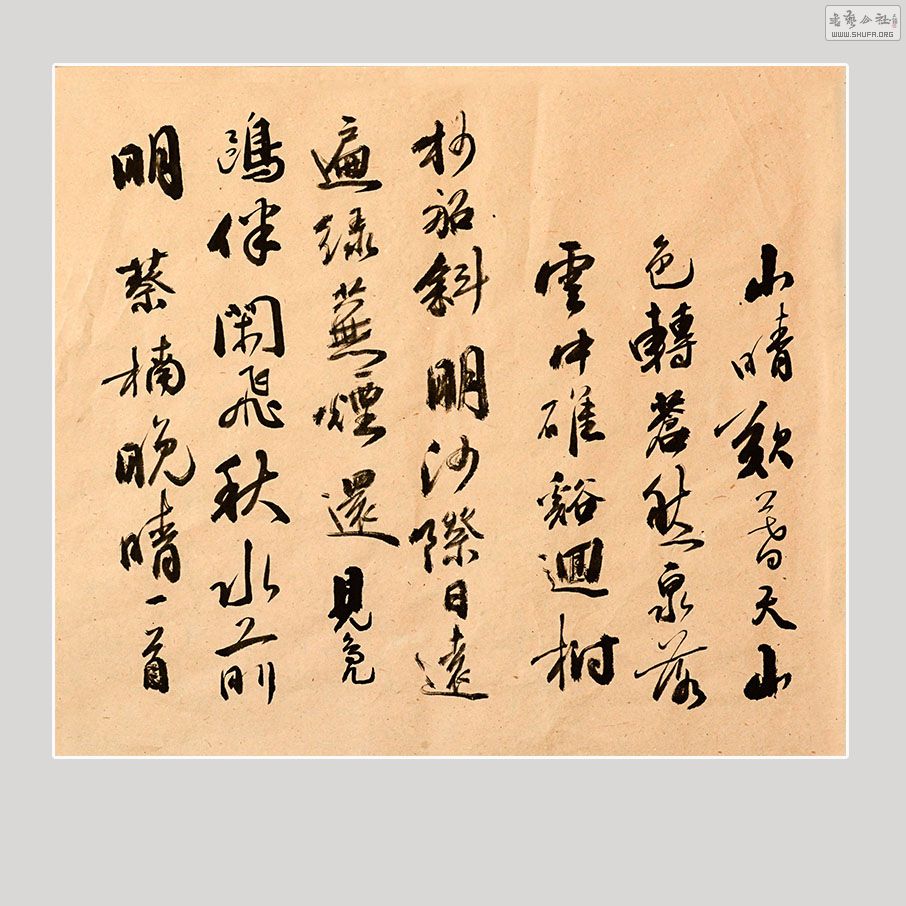 山晴暮天山
色轉蒼然泉落
雲中碓谿迴樹
杪船斜明沙際日遠
遍綠蕪煙還見鳧
鷗伴閑飛秋水前
明 蔡楠晚晴一首
WWW.SHUFA.ORG